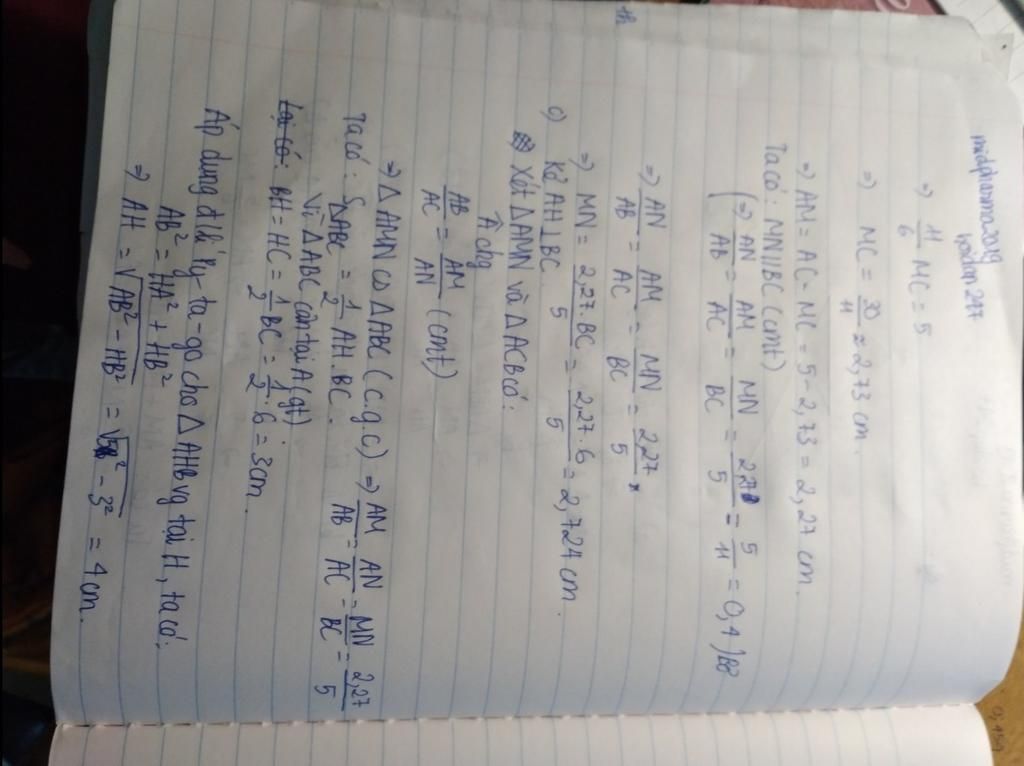 midphama2019
hoidan 247
⇒ 11/6 MC = 5
⇒ MC = 30/11 ≈ 2,73 cm.
⇒ AM = AC - MC = 5 - 2,73 = 2,27 cm.
Ta có: MN // BC (cmt)
(⇒ AN/AB = AM/AC = MN/BC = 2,27/5 = 5/11 = 0,4)
⇒ AN/AB = AM/AC = MN/BC = 2,27/5
⇒ MN = 2,27.BC/5 = 2,27.6/5 = 2,724 cm.
c) Kẻ AH ⊥ BC.
Xét ∆AMN và ∆ACB có:
Â chg
AB/AC = AM/AN (cmt)
⇒ ∆AMN ∽ ∆ABC (c.g.c) ⇒ AM/AB = AN/AC = MN/BC = 2,27/5
Ta có: S∆ABC = 1/2 AH.BC.
Vì ∆ABC cân tại A (gt)
Lại có: BH = HC = 1/2 BC = 1/2.6 = 3cm.
Áp dụng đ lí Py-ta-go cho ∆AHB vg tại H, ta có:
AB² = HA² + HB²
⇒ AH = √AB² - HB² = √5² - 3² = 4 cm.